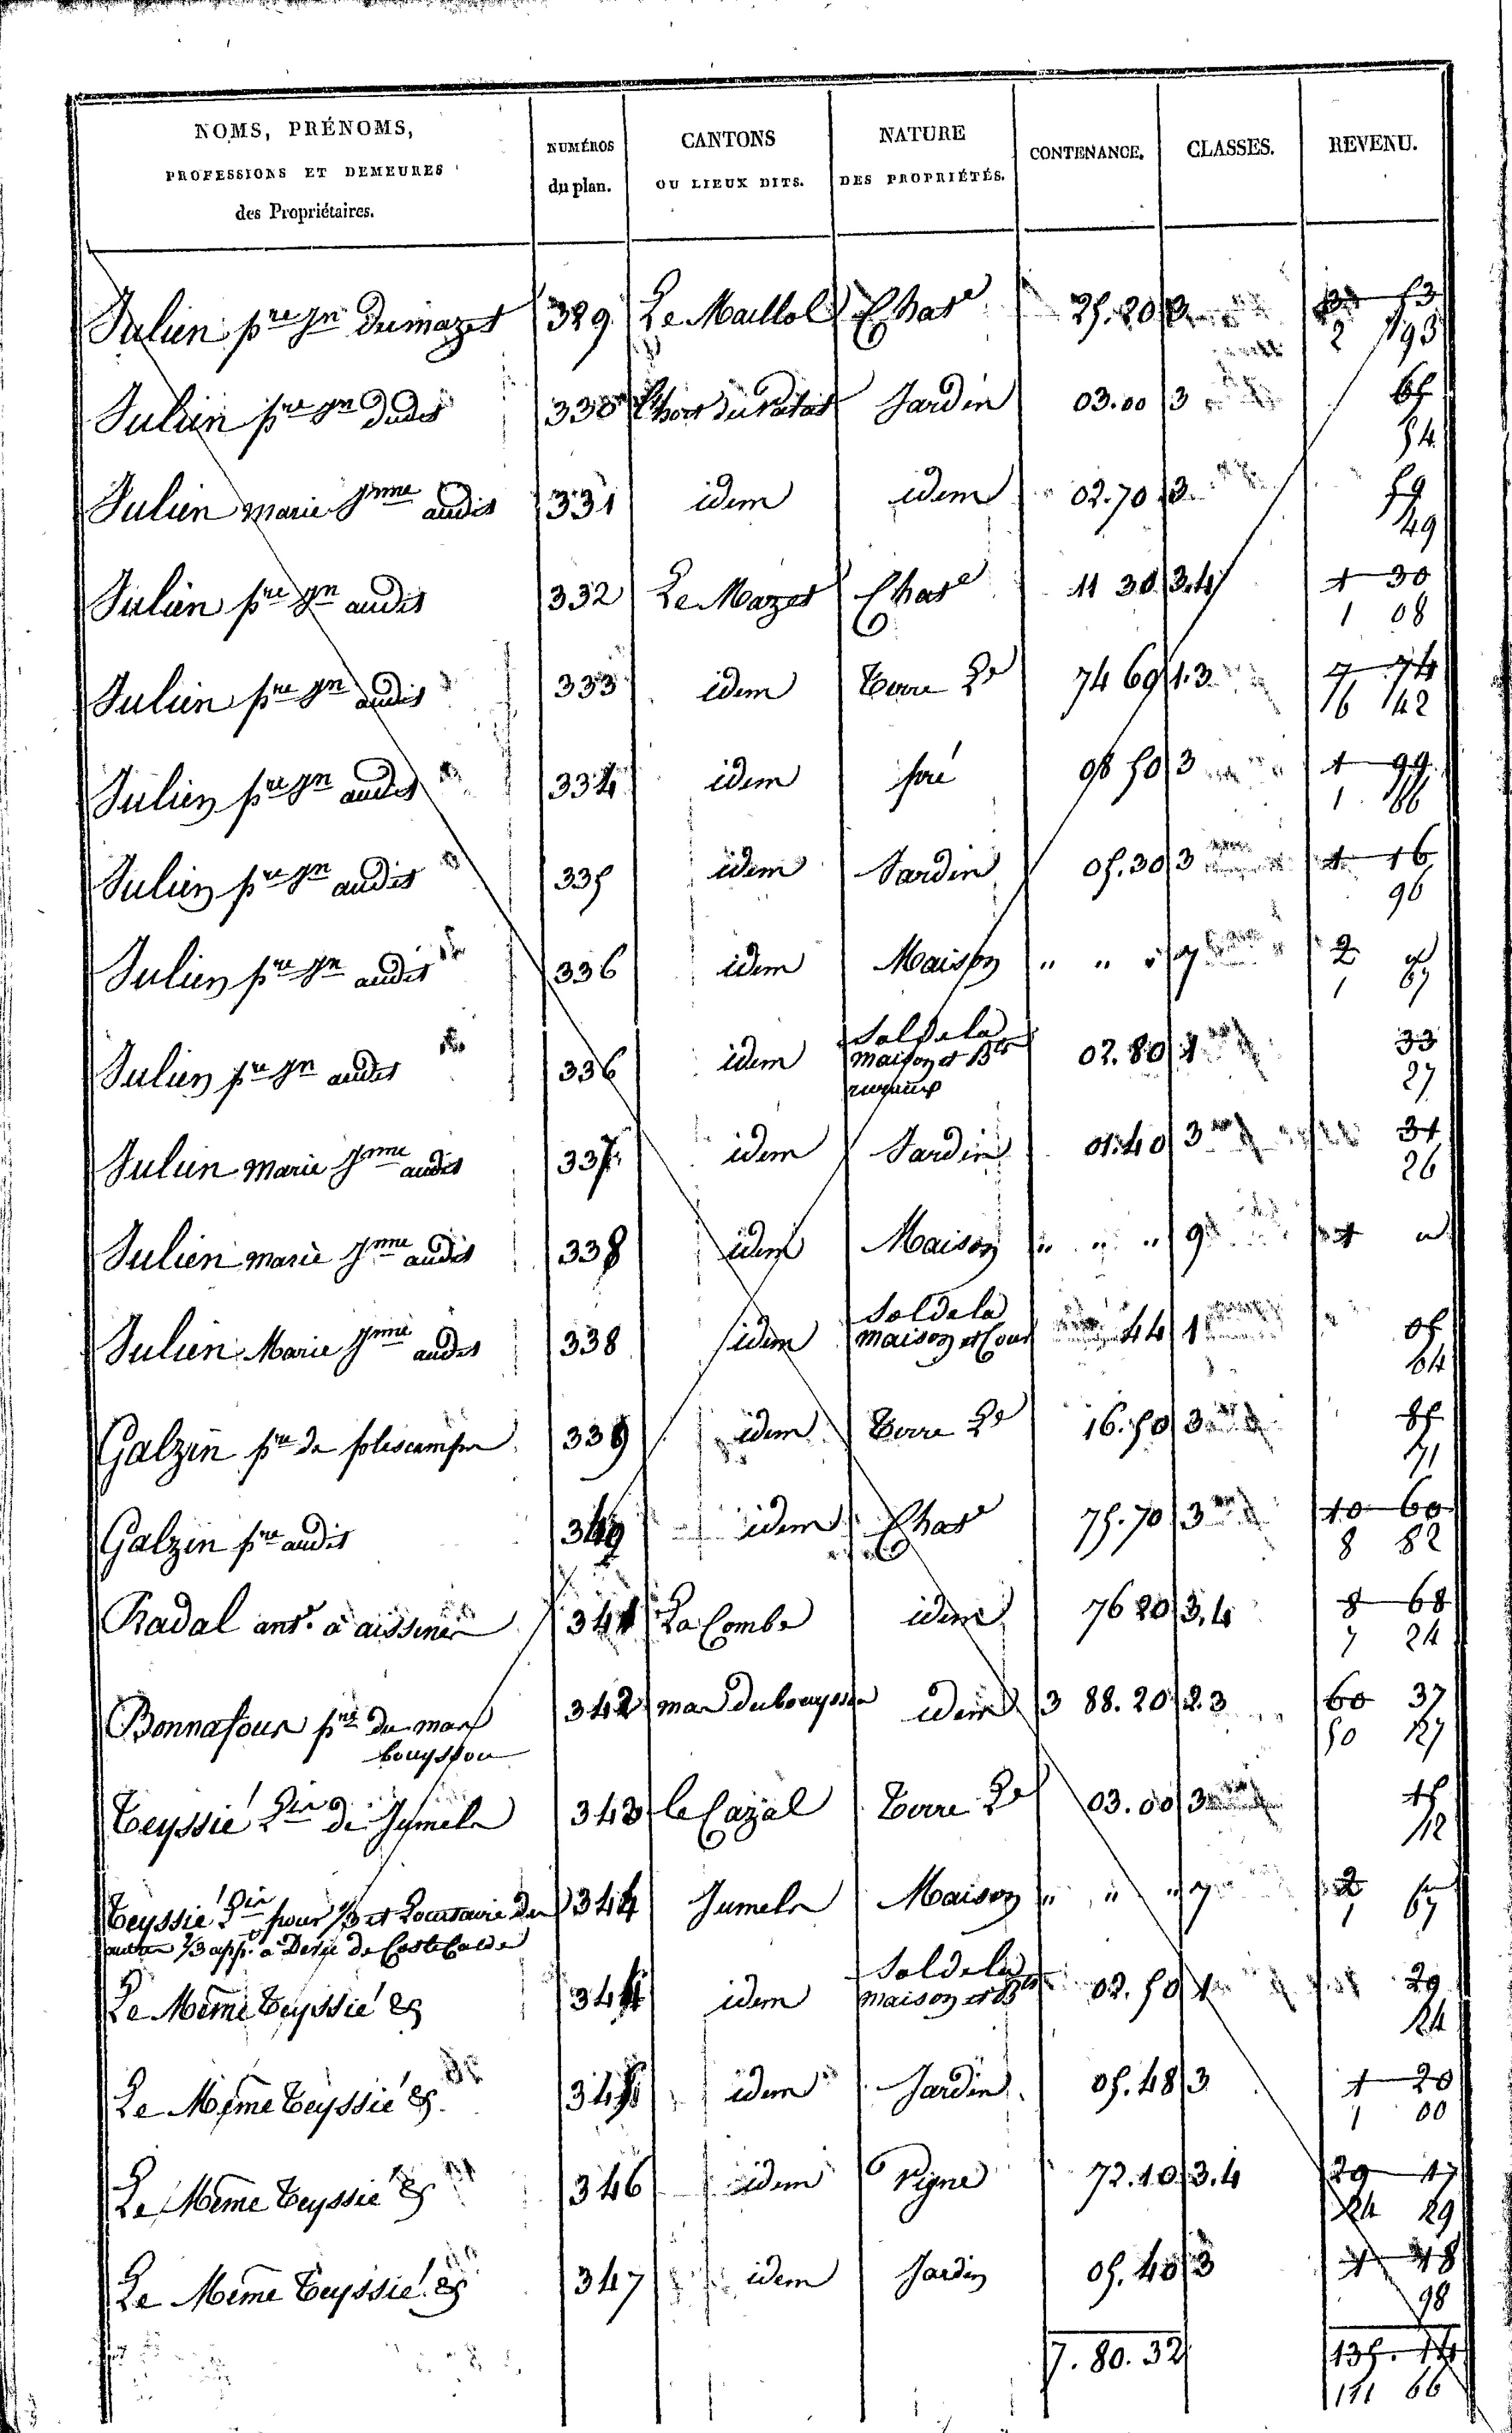 NOMS, PRÉNOMS, PROFESSIONS ET DEMEURES des Propriétaires. NUMÉROS du plan. CANTONS OU LIEUX DITS. NATURE DES PROPRIÉTÉS. CONTENANCE. CLASSES. REVENU.
Julien pre Jn Dumazet 329 Le Maillol Chate 25.20 3 53
2 93
Julien pre Jn dudit 330 Jardin 03.00 3 65
54
Julien marie Jnne audit 331 idem idem 02.70 3 59
49
Julien pre Jn audit 332 Le Mazet Chate 11 30 3.4 1 30
1 08
Julien pre Jn audit 333 idem Terre Le 74 69 1.3 7 74
6 42
Julien pre Jn audit 334 idem pré 08 50 3 1 99
1 66
Julien pre Jn audit 335 idem Jardin 05.30 3 1 16
96
Julien pre Jn audit 336 idem Maison " " " 7 2 "
1 67
Julien pre Jn audit 336 idem Sol de la maison et Bts ruraux 02.80 1 33
27
Julien marie Jnne audit 337 idem Jardin 01.40 3 31
26
Julien marie Jnne audit 338 idem Maison " " " 9 1 "
Julien Marie Jnne audit 338 idem Sol de la maison et Cour 44 1 05
04
Galzin pre de 339 idem Terre Le 16.50 3 85
71
Galzin pre audit 340 idem Chate 75.70 3 10 60
8 82
Radal ant. à aissenes 341 La Combe idem 76 20 3.4 8 68
7 24
Bonnafous pre du mas 342 mas dubouysson idem 3 88.20 2.3 60 37
bouyssou 50 27
Teyssié de Jumels 343 le Cazal Terre Le 03.00 3 15
12
Teyssié pour 1/3 et 344 Jumels Maison " " " 7 2 "
autres 2/3 appt. a de Coste Calde 1 67
Le Même Teyssié & 344 idem Sol de la maison et Bts 02.50 1 29
24
Le Même Teyssié & 345 idem Jardin 05.48 3 1 20
1 00
Le Même Teyssié & 346 idem Vigne 72.10 3.4 29 17
24 29
Le Même Teyssié & 347 idem Jardin 05.40 3 1 18
98
7.80.32 135.14
111 66